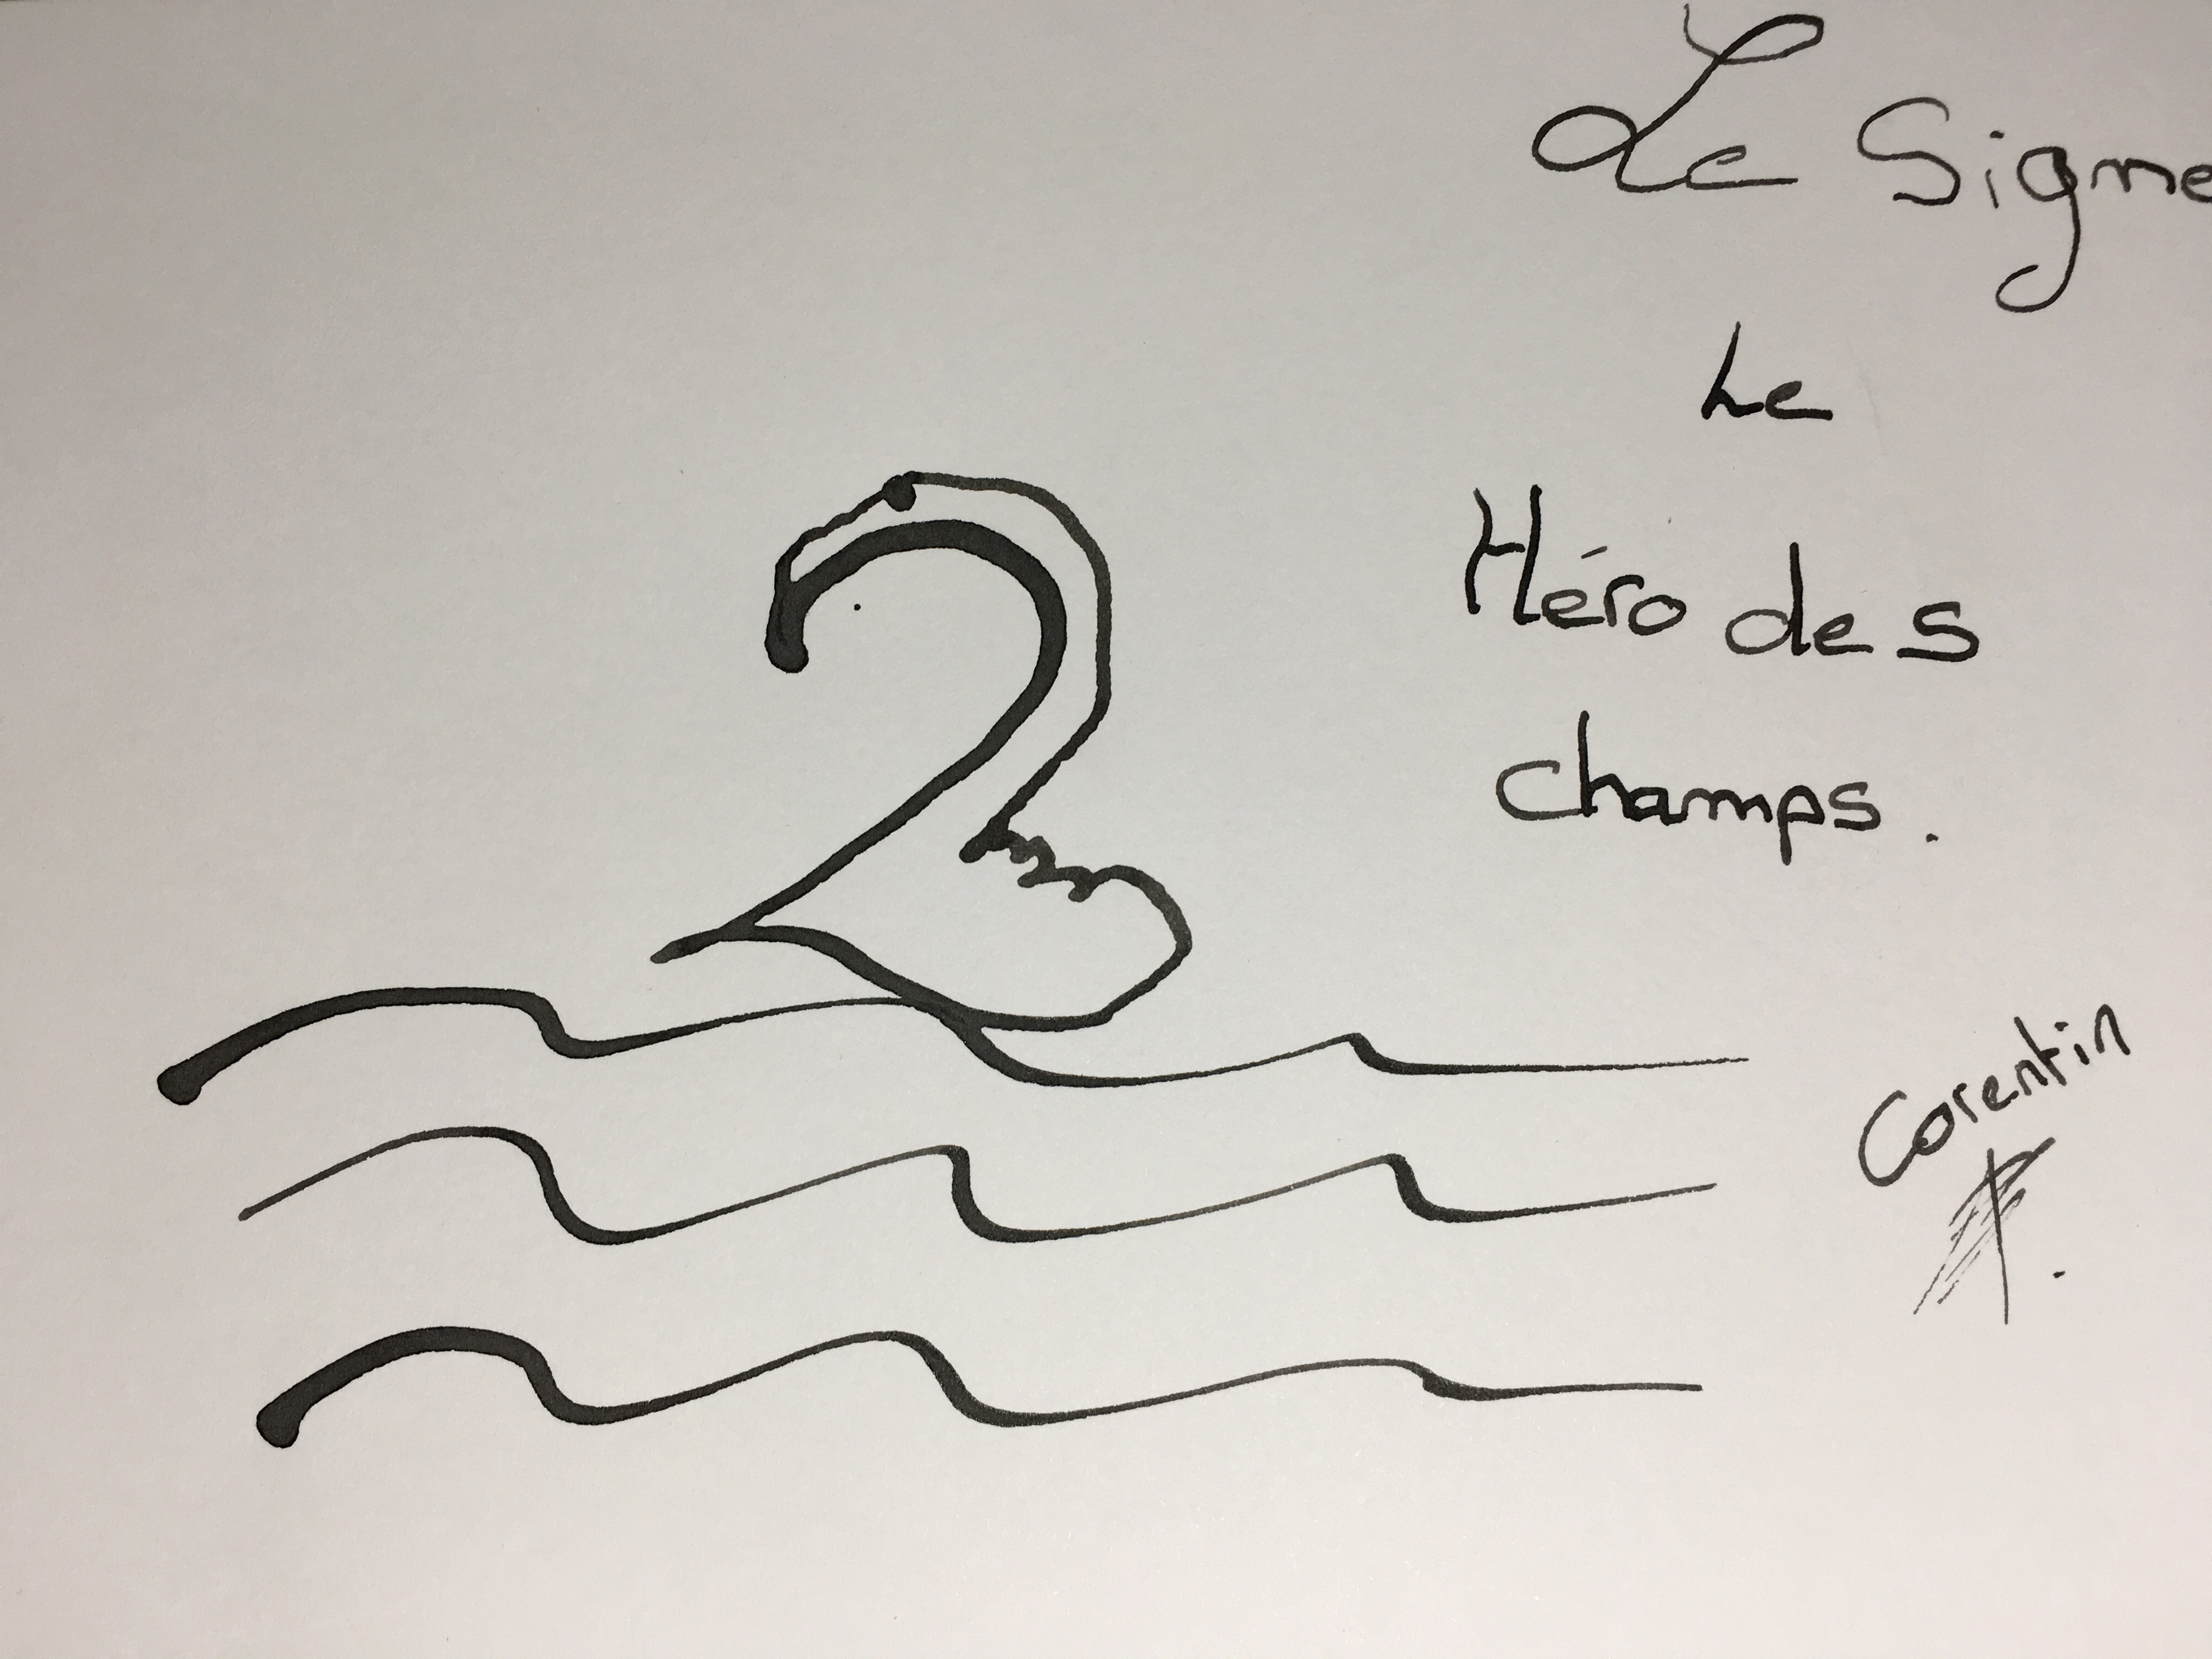 Le Signe
Le
Héro des
champs.
Corentin